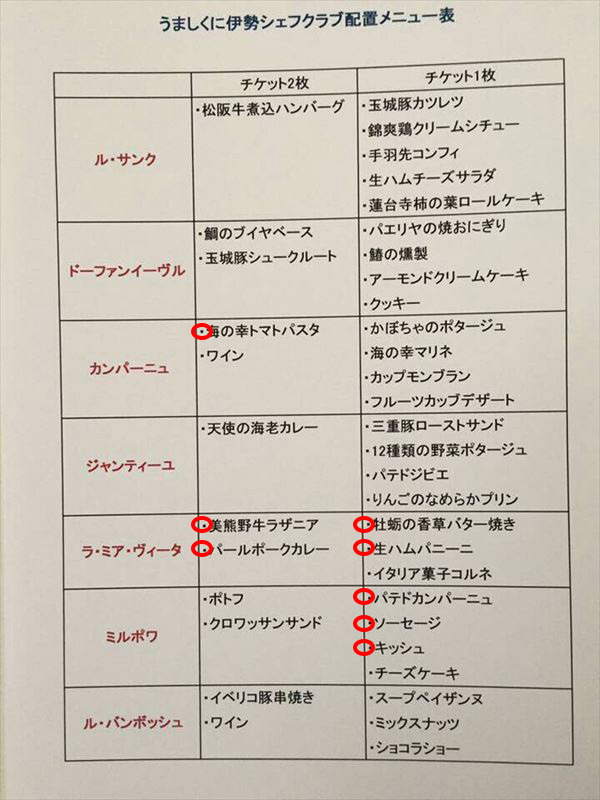 うましくに伊勢シェフクラブ配置メニュー表
チケット2枚
チケット1枚
ル・サンク
・松阪牛煮込ハンバーグ
・玉城豚カツレツ
・錦爽鶏クリームシチュー
・手羽先コンフィ
・生ハムチーズサラダ
・蓮台寺柿の葉ロールケーキ
ドーファンイーヴル
・鯛のブイヤベース
・玉城豚シュークルート
・パエリヤの焼おにぎり
・鰆の燻製
・アーモンドクリームケーキ
・クッキー
カンパーニュ
・海の幸トマトパスタ
・ワイン
・かぼちゃのポタージュ
・海の幸マリネ
・カップモンブラン
・フルーツカップデザート
ジャンティーユ
・天使の海老カレー
・三重豚ローストサンド
・12種類の野菜ポタージュ
・パテドジビエ
・りんごのなめらかプリン
ラ・ミア・ヴィータ
・美熊野牛ラザニア
・パールポークカレー
・牡蛎の香草バター焼き
・生ハムパニーニ
・イタリア菓子コルネ
ミルポワ
・ポトフ
・クロワッサンサンド
・パテドカンパーニュ
・ソーセージ
・キッシュ
・チーズケーキ
ル・バンボッシュ
・イベリコ豚串焼き
・ワイン
・スープペイザンヌ
・ミックスナッツ
・ショコラショー